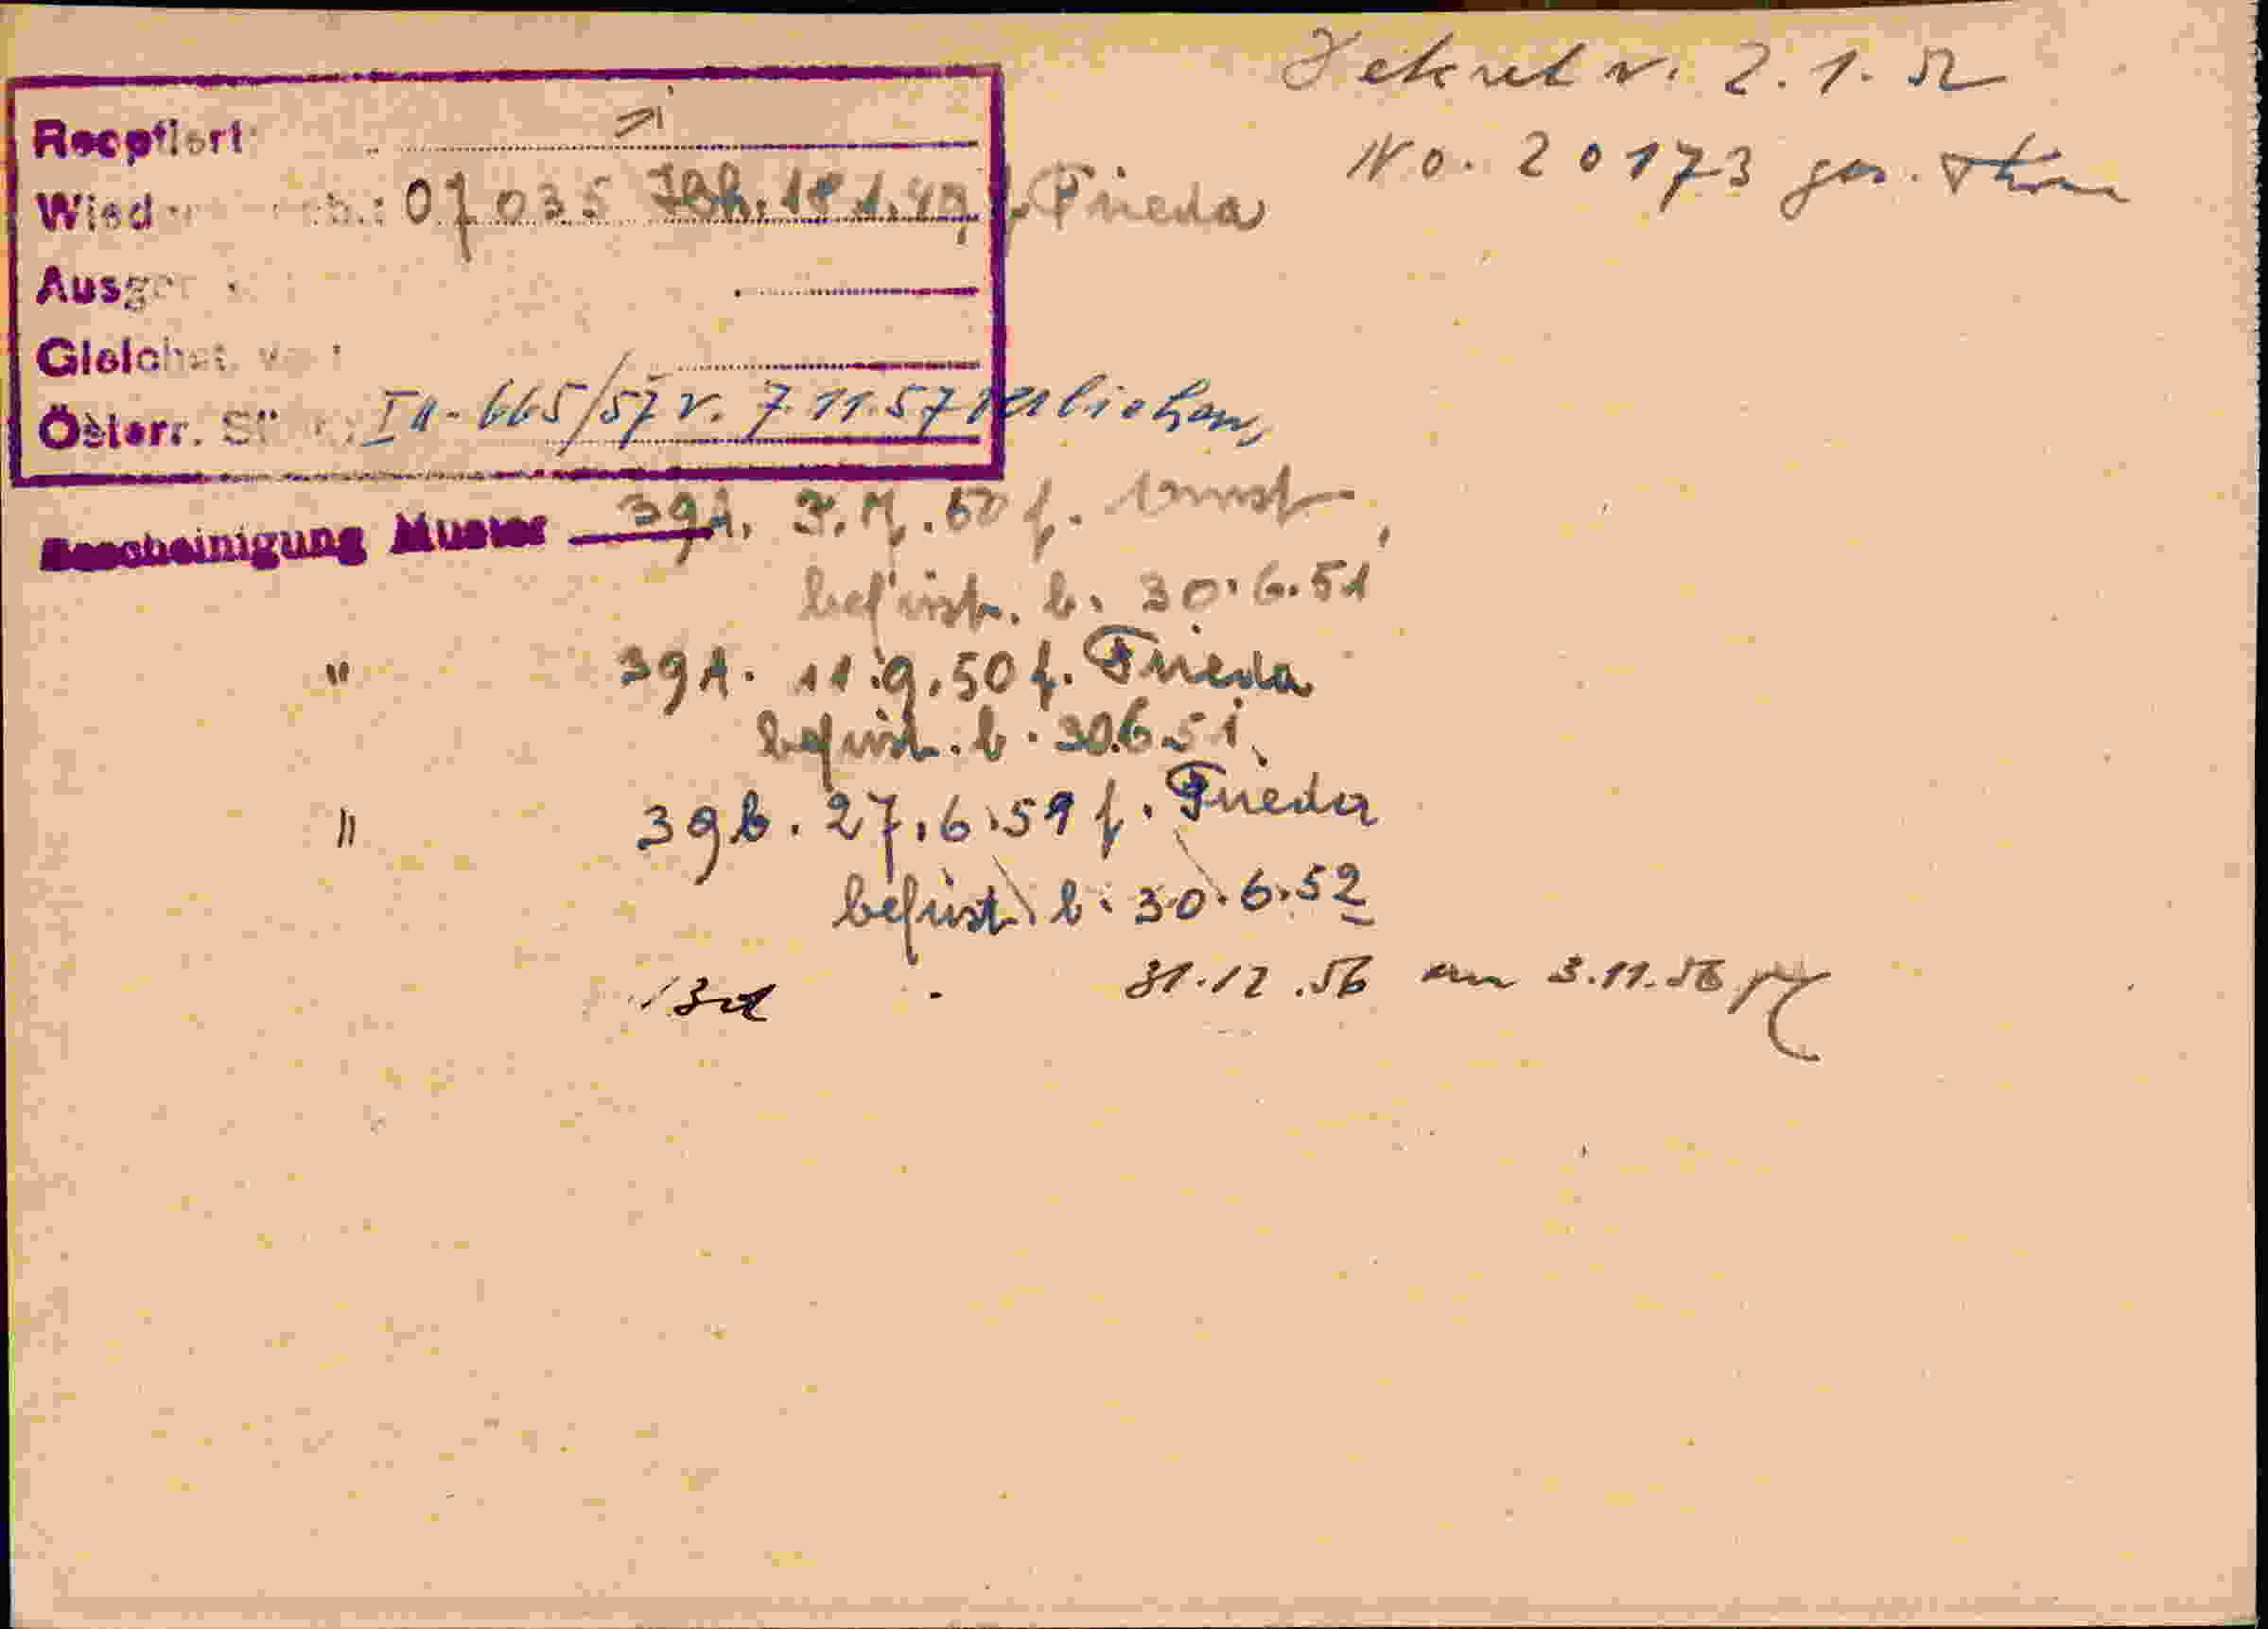 Dekret v. 2.1.52
No. 20173 gez.
Reoptiert
Wied 07035 18.1.49 f. Frieda
Ausger
Gleichst. v.
Österr. St IA-665/57 v. 7.11.57 verliehen
Bescheinigung Muster 39A. 3.7.50 f. Ernst
befrist. b. 30.6.51
" 39A. 11.9.50 f. Frieda
befrist. b. 30.6.51
" 39b. 27.6.51 f. Frieda
befrist. b. 30.6.52
31.12.56 am 3.11.56